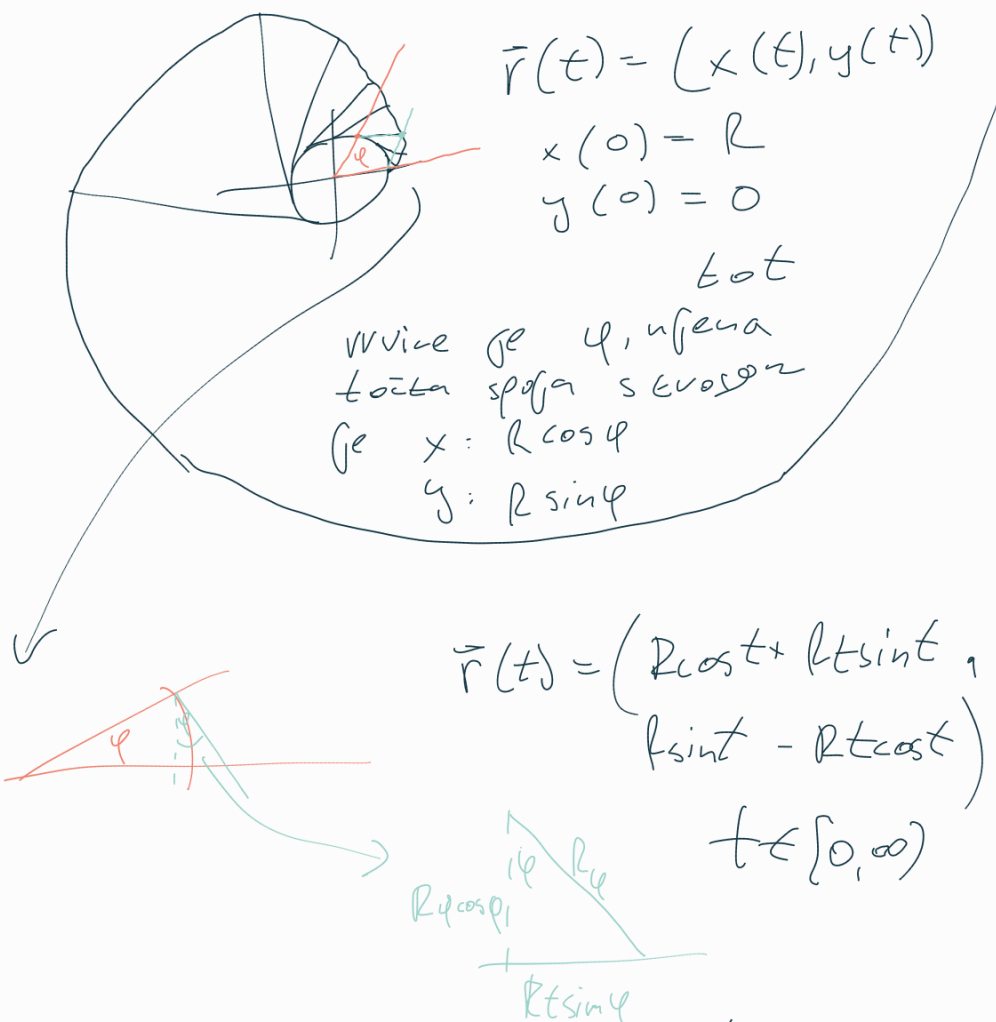 r⃗(t) = (x(t), y(t))
x(0) = R
y(0) = 0
φ
je φ, njena
točka spoja s
je x: R cos φ
y: R sin φ
r⃗(t) = (R cos t + R t sin t,
R sin t - R t cos t)
t ∈ [0, ∞)
φ
φ
φ
Rφ
Rφ cos φ
Rt sin φ